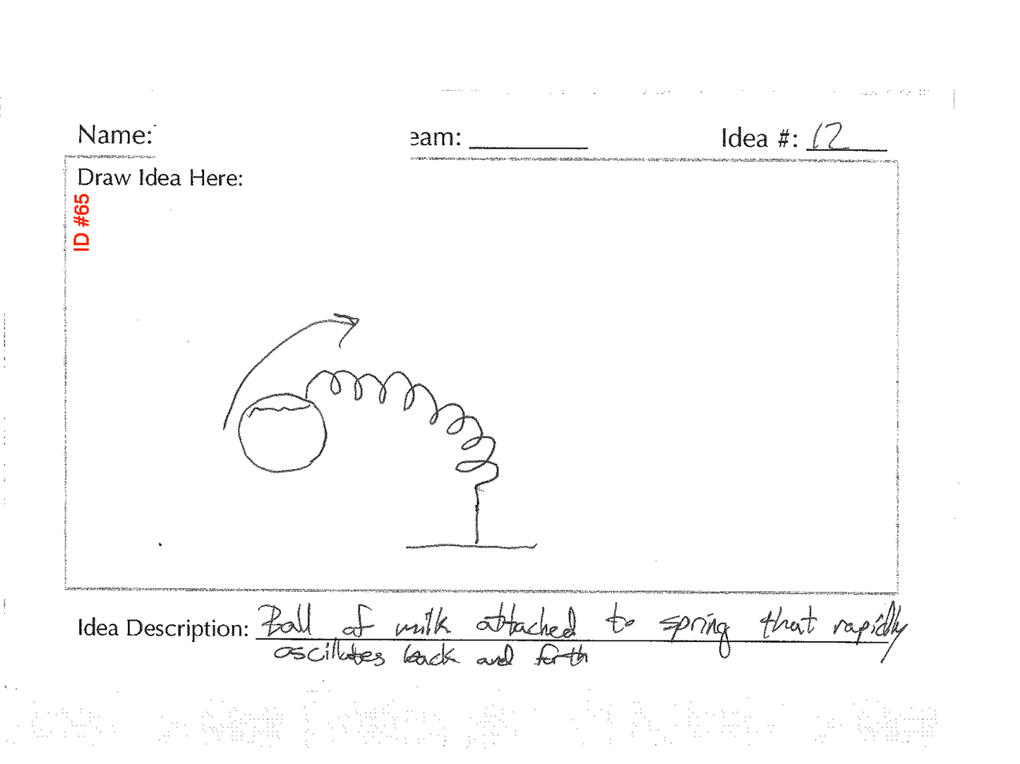 Name: eam: Idea #: 12
Draw Idea Here:
ID #65
Idea Description: Ball of milk attached to spring that rapidly
oscillates back and forth